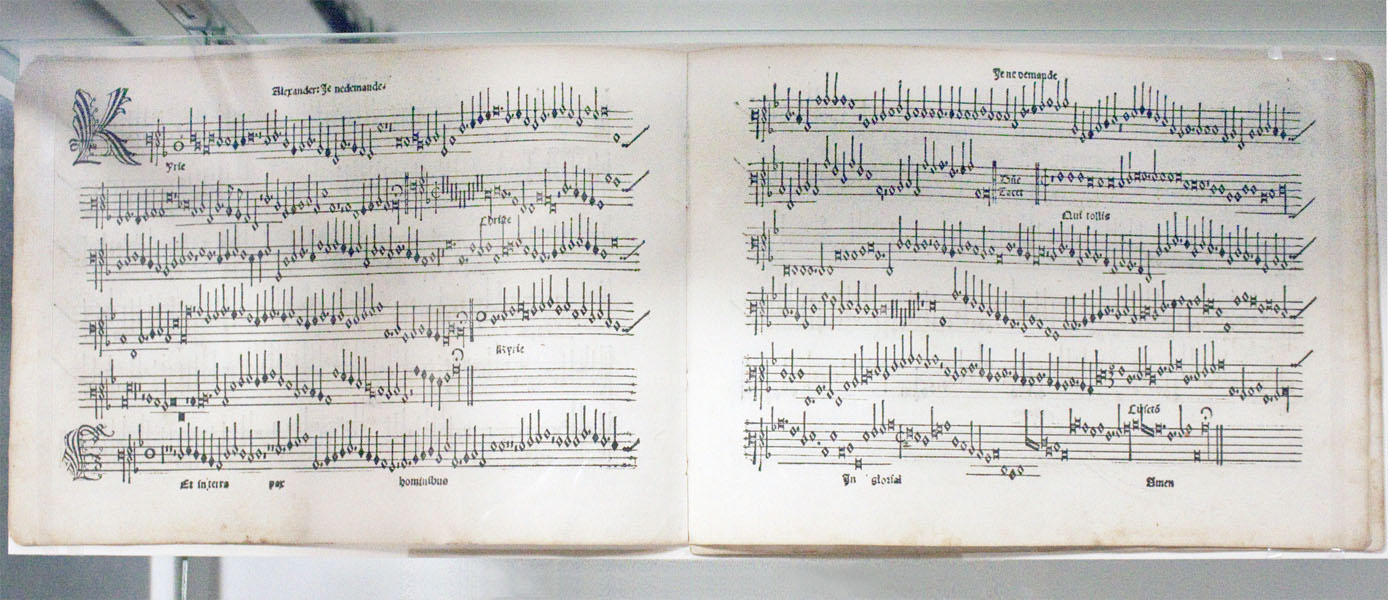 Alexander: Je nedemande.
Kyrie
Christe
Kyrie
Et in terra pax hominibus
Je ne demande
Duo
Tacet
Qui tollis
Cu sctō
In gloria Amen